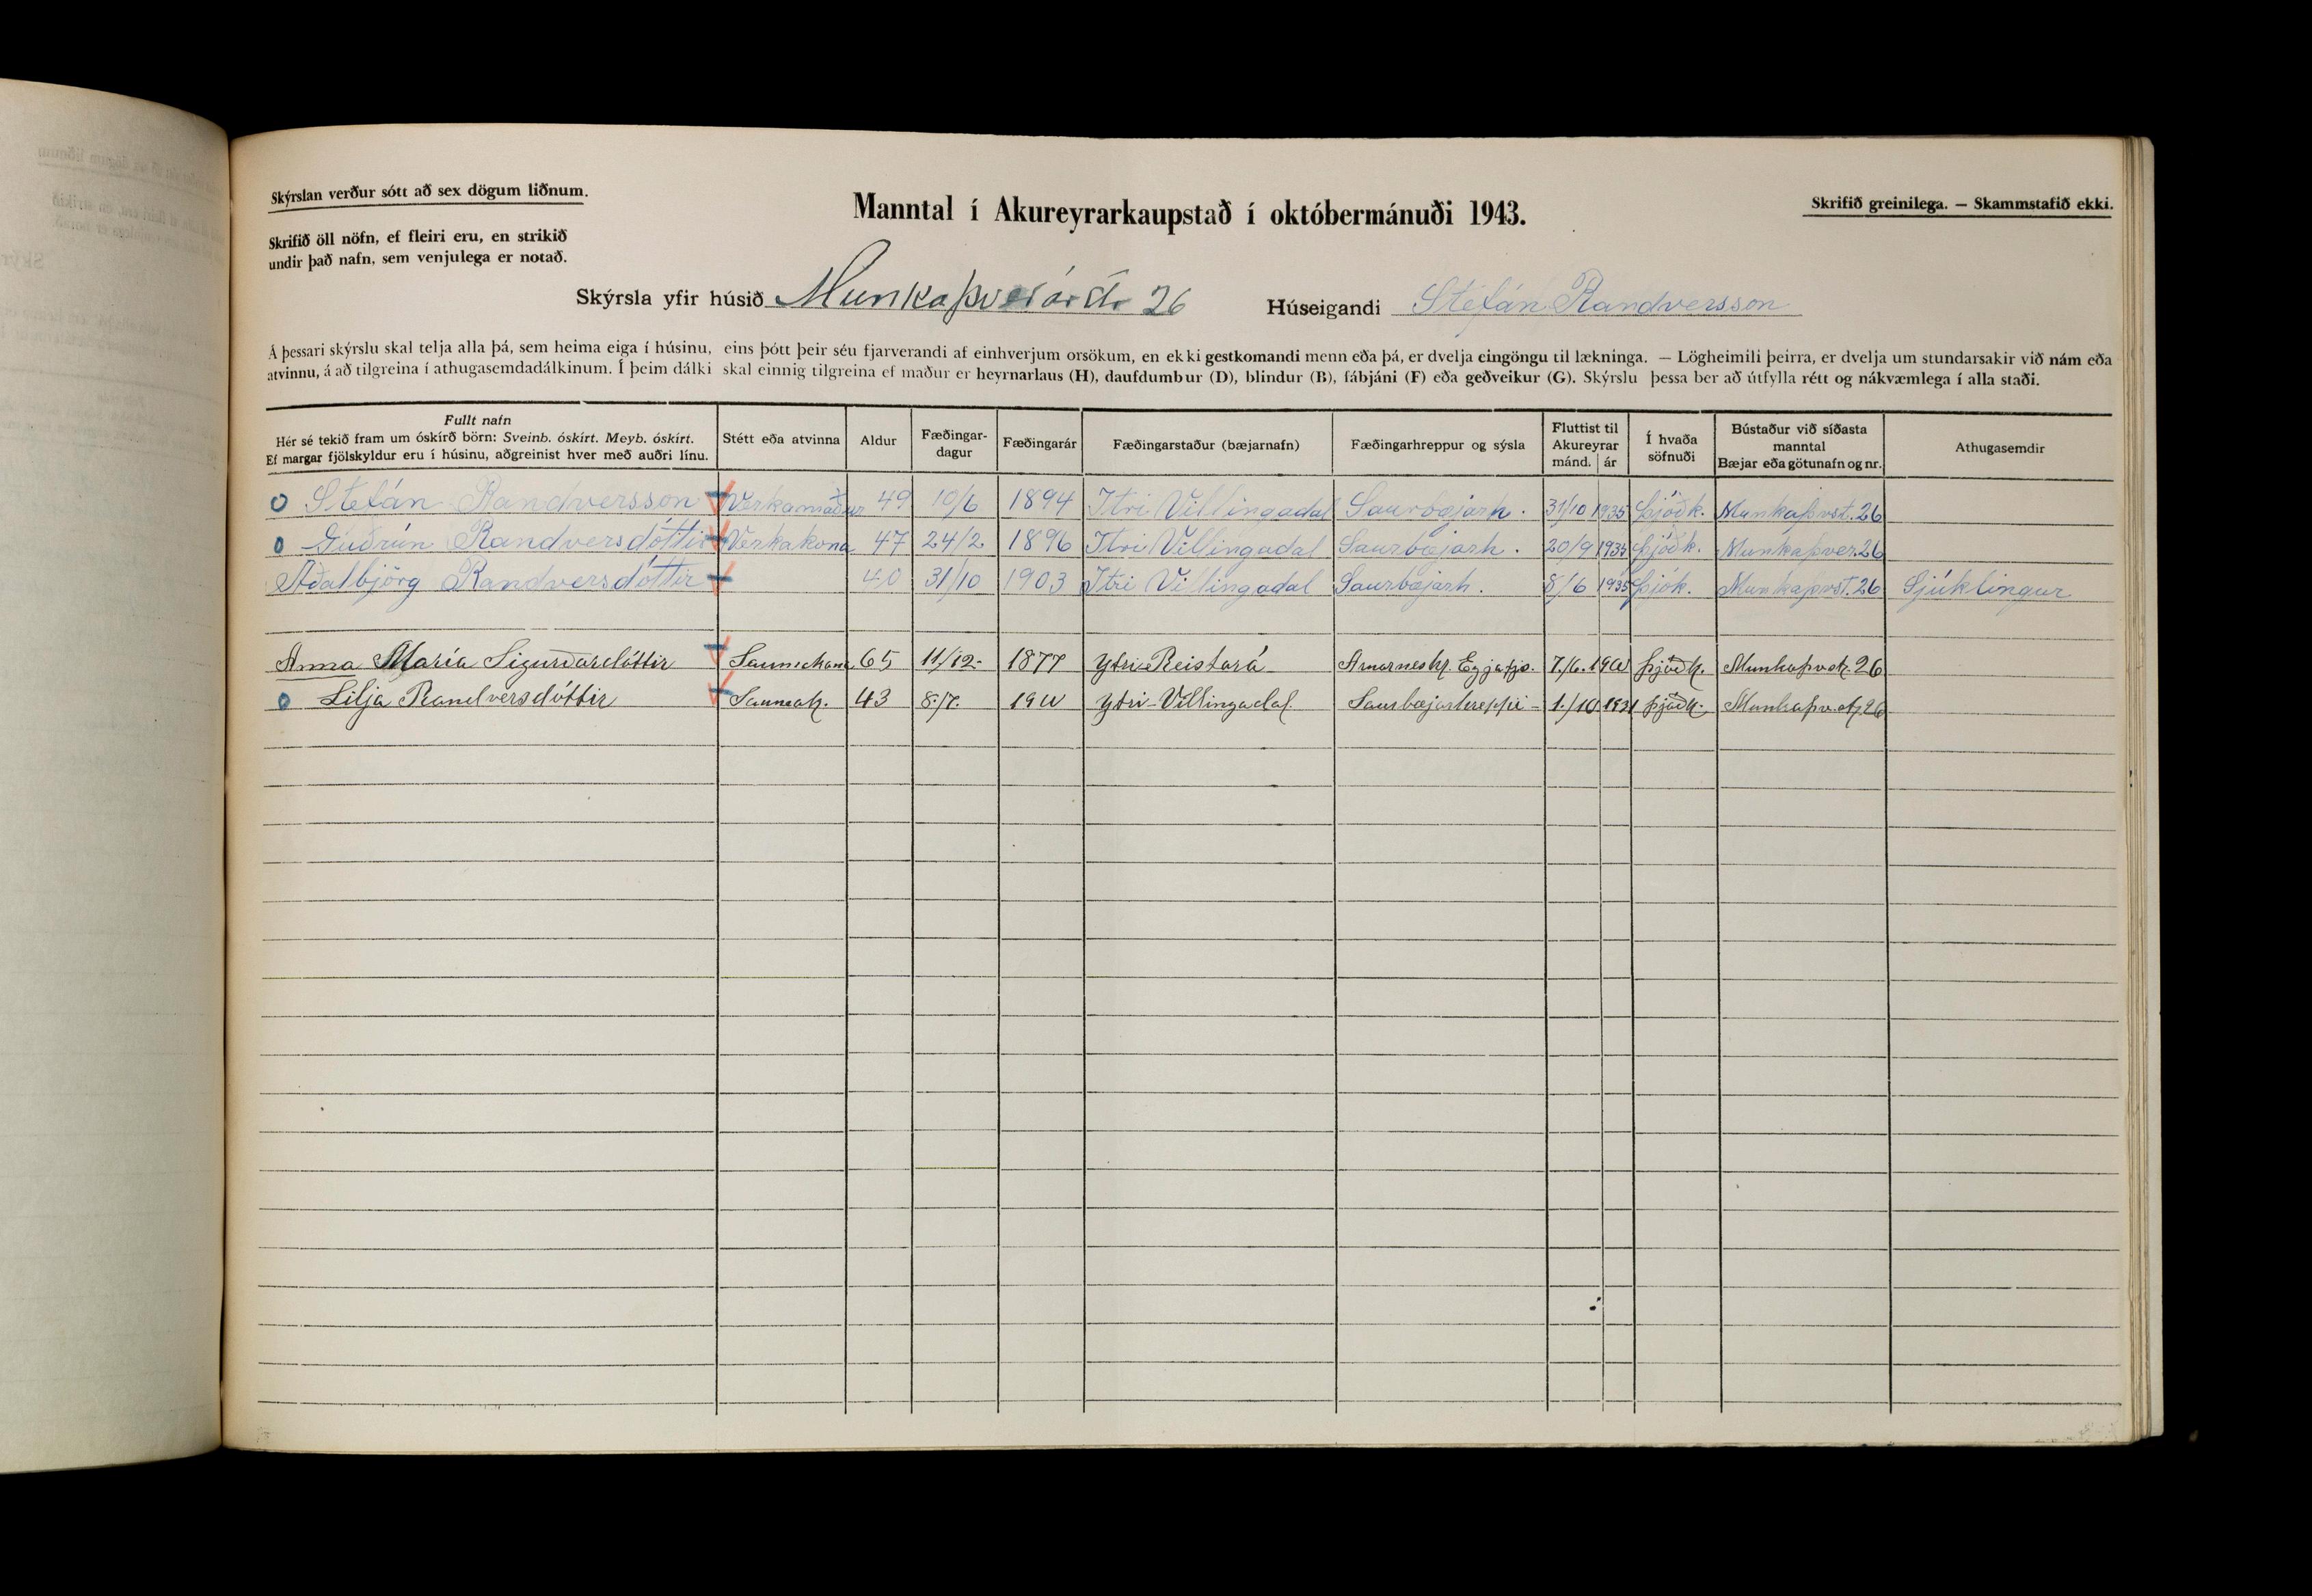 Skýrslan verður sótt að sex dögum liðnum.
Manntal í Akureyrarkaupstað í októbermánuði 1943.
Skrifið greinilega. — Skammstafið ekki.
Skrifið öll nöfn, ef fleiri eru, en strikið
undir það nafn, sem venjulega er notað.
Skýrsla yfir húsið Munkaþverárstr 26 Húseigandi Stefán Randversson
Á þessari skýrslu skal telja alla þá, sem heima eiga í húsinu, eins þótt þeir séu fjarverandi af einhverjum orsökum, en ekki gestkomandi menn eða þá, er dvelja eingöngu til lækninga. — Lögheimili þeirra, er dvelja um stundarsakir við nám eða
atvinnu, á að tilgreina í athugasemdadálkinum. Í þeim dálki skal einnig tilgreina ef maður er heyrnarlaus (H), daufdumbur (D), blindur (B), fábjáni (F) eða geðveikur (G). Skýrslu þessa ber að útfylla rétt og nákvæmlega í alla staði.
Fullt nafn
Hér sé tekið fram um óskírð börn: Sveinb. óskírt. Meyb. óskírt.
Ef margar fjölskyldur eru í húsinu, aðgreinist hver með auðri línu.
Stétt eða atvinna
Aldur
Fæðingar-
dagur
Fæðingarár
Fæðingarstaður (bæjarnafn)
Fæðingarhreppur og sýsla
Fluttist til
Akureyrar
mánd. ár
Í hvaða
söfnuði
Bústaður við síðasta
manntal
Bæjar eða götunafn og nr.
Athugasemdir
o Stefán Randversson Verkamaður 49 10/6 1894 Itri Villingadal Saurbæjarh. 31/10 1935 þjóðk. Munkaþvst. 26
o Guðrún Randversdóttir Verkakona 47 24/2 1896 Itri Villingadal Saurbæjarh. 20/9 1935 þjóðk. Munkaþver. 26
Aðalbjörg Randversdóttir 40 31/10 1903 Itri Villingadal Saurbæjarh. 8/6 1935 þjók. Munkaþvst. 26 Sjúklingur
Anna María Sigurðardóttir Saumakona 65 11/12- 1877 Ytri-Reistará Arnarneshr. Eyjafjs. 7./6. þjóðk. Munkaþvstr. 26
o Lilja Randversdóttir Saumak. 43 8./7. Ytri-Villingadal. Saurbæjarhreppi - 1./10 1931 þjóðk. Munkaþv.str. 26